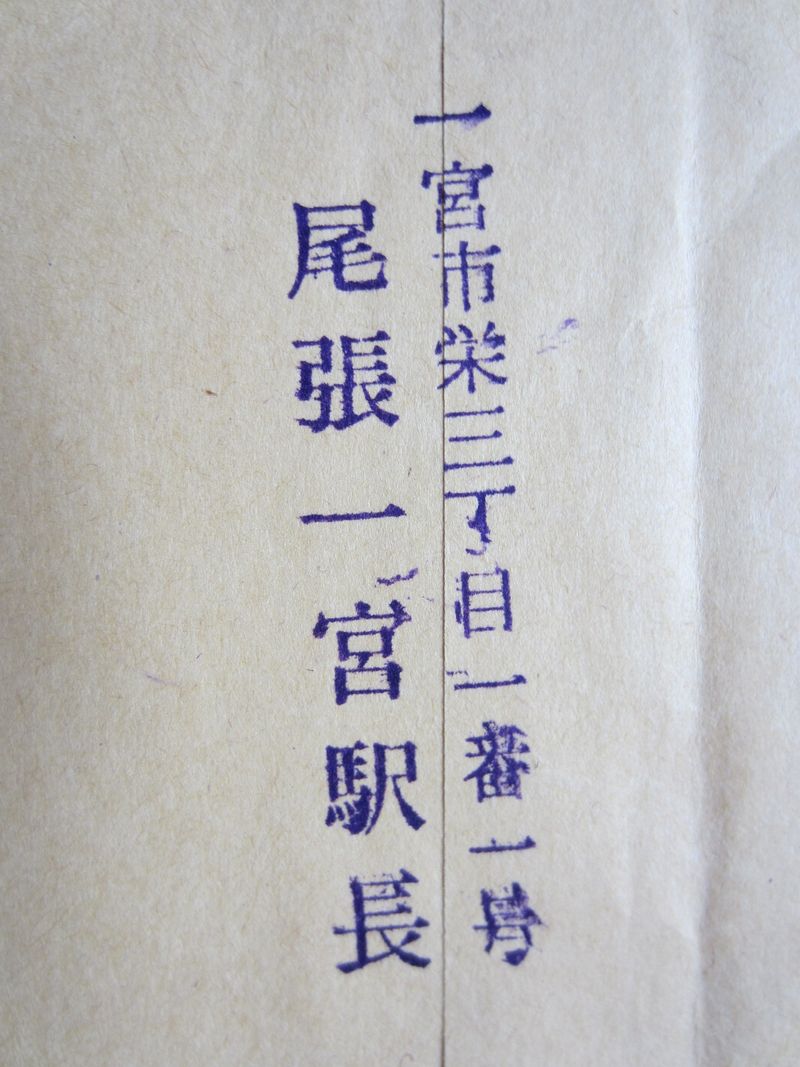 一宮市栄三丁目一番一号
尾張一宮駅長